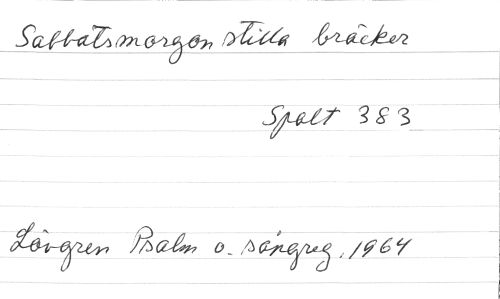 Sabbatsmorgon stilla bräcker
Spalt 383
Lövgren Psalm o. sångreg. 1964